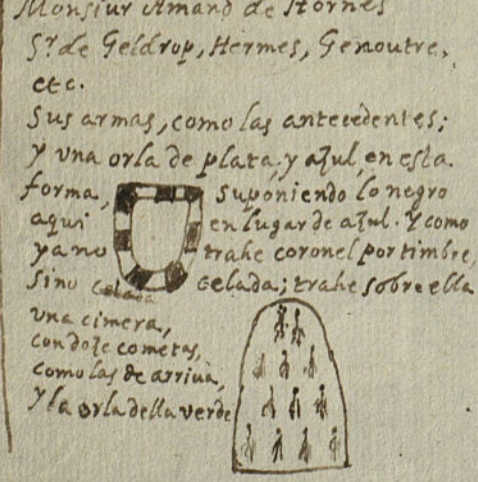 Monsiur Amand de Hornes
Sr. de Geldrop, Hermes, Genoutre,
etc.
Sus armas, como las antecedentes;
y una orla de plata, y azul, en esta
forma, suponiendo lo negro
aqui en lugar de azul. Y como
ya no trahe coronel por timbre,
sino celada celada; trahe sobre ella
una cimera,
con doze cometas,
como las de arriua,
y la orla della verde